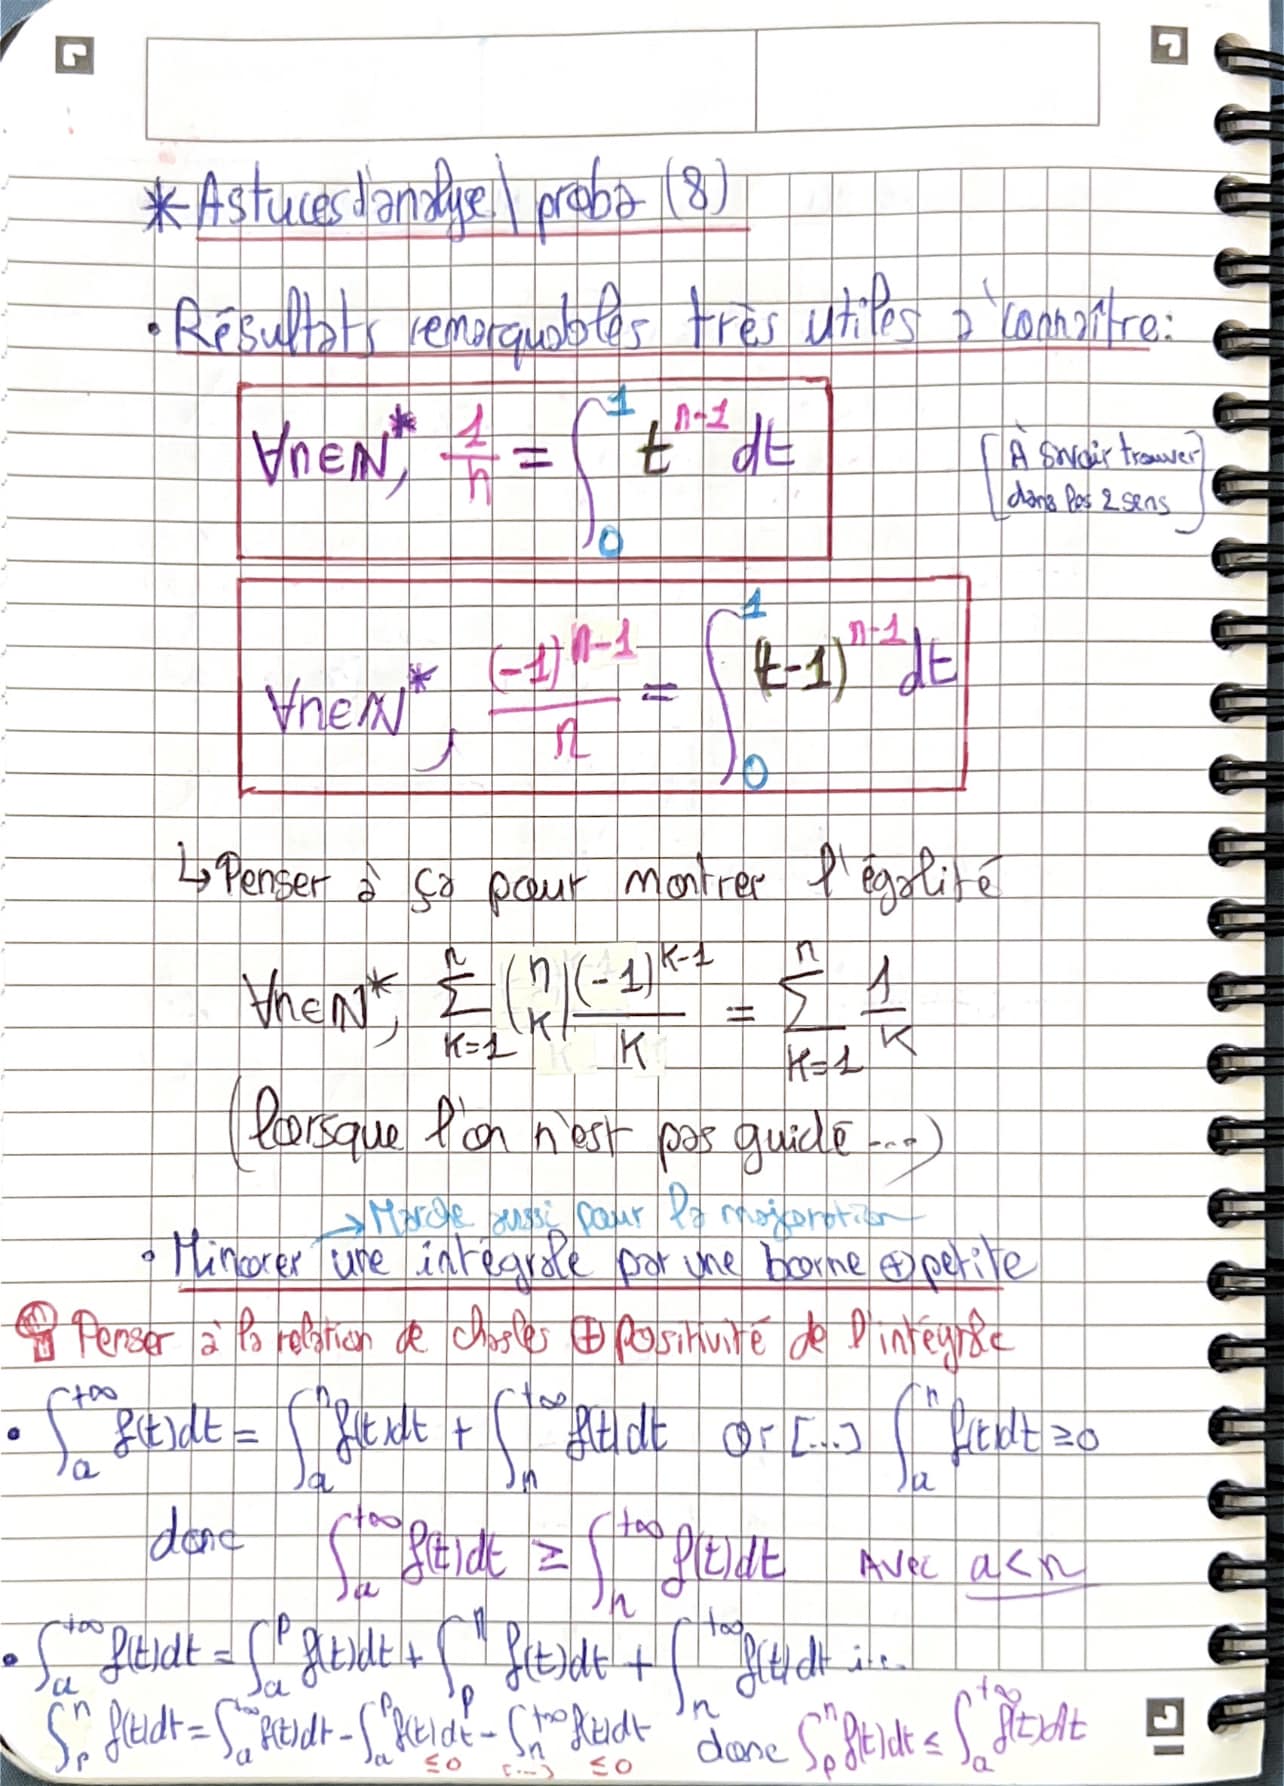 * Astuces d'analyse \ proba (8)
• Résultats remarquables très utiles à connaître:
∀n∈ℕ*, 1/n = ∫₀¹ t^(n-1) dt
[À savoir trouver
dans les 2 sens]
∀n∈ℕ*, (-1)^(n-1)/n = ∫₀¹ (t-1)^(n-1) dt
↳ Penser à ça pour montrer l'égalité
∀n∈ℕ*, ∑_{k=1}^{n} (n k) (-1)^(k-1)/k = ∑_{k=1}^{n} 1/k
(lorsque l'on n'est pas guidé ....)
→ Marche aussi pour la majoration
• Minorer une intégrale par une borne ⊕ petite
Penser à la relation de chasles ⊕ positivité de l'intégrale
• ∫_a^{+∞} f(t)dt = ∫_a^n f(t)dt + ∫_n^{+∞} f(t)dt Or [...] ∫_a^n f(t)dt ≥0
donc ∫_a^{+∞} f(t)dt ≥ ∫_n^{+∞} f(t)dt Avec a<n
• ∫_a^{+∞} f(t)dt = ∫_a^p f(t)dt + ∫_p^n f(t)dt + ∫_n^{+∞} f(t)dt i.e.
∫_p^n f(t)dt = ∫_a^{+∞} f(t)dt - ∫_a^p f(t)dt - ∫_n^{+∞} f(t)dt donc ∫_p^n f(t)dt ≤ ∫_a^{+∞} f(t)dt
≤0 (...) ≤0